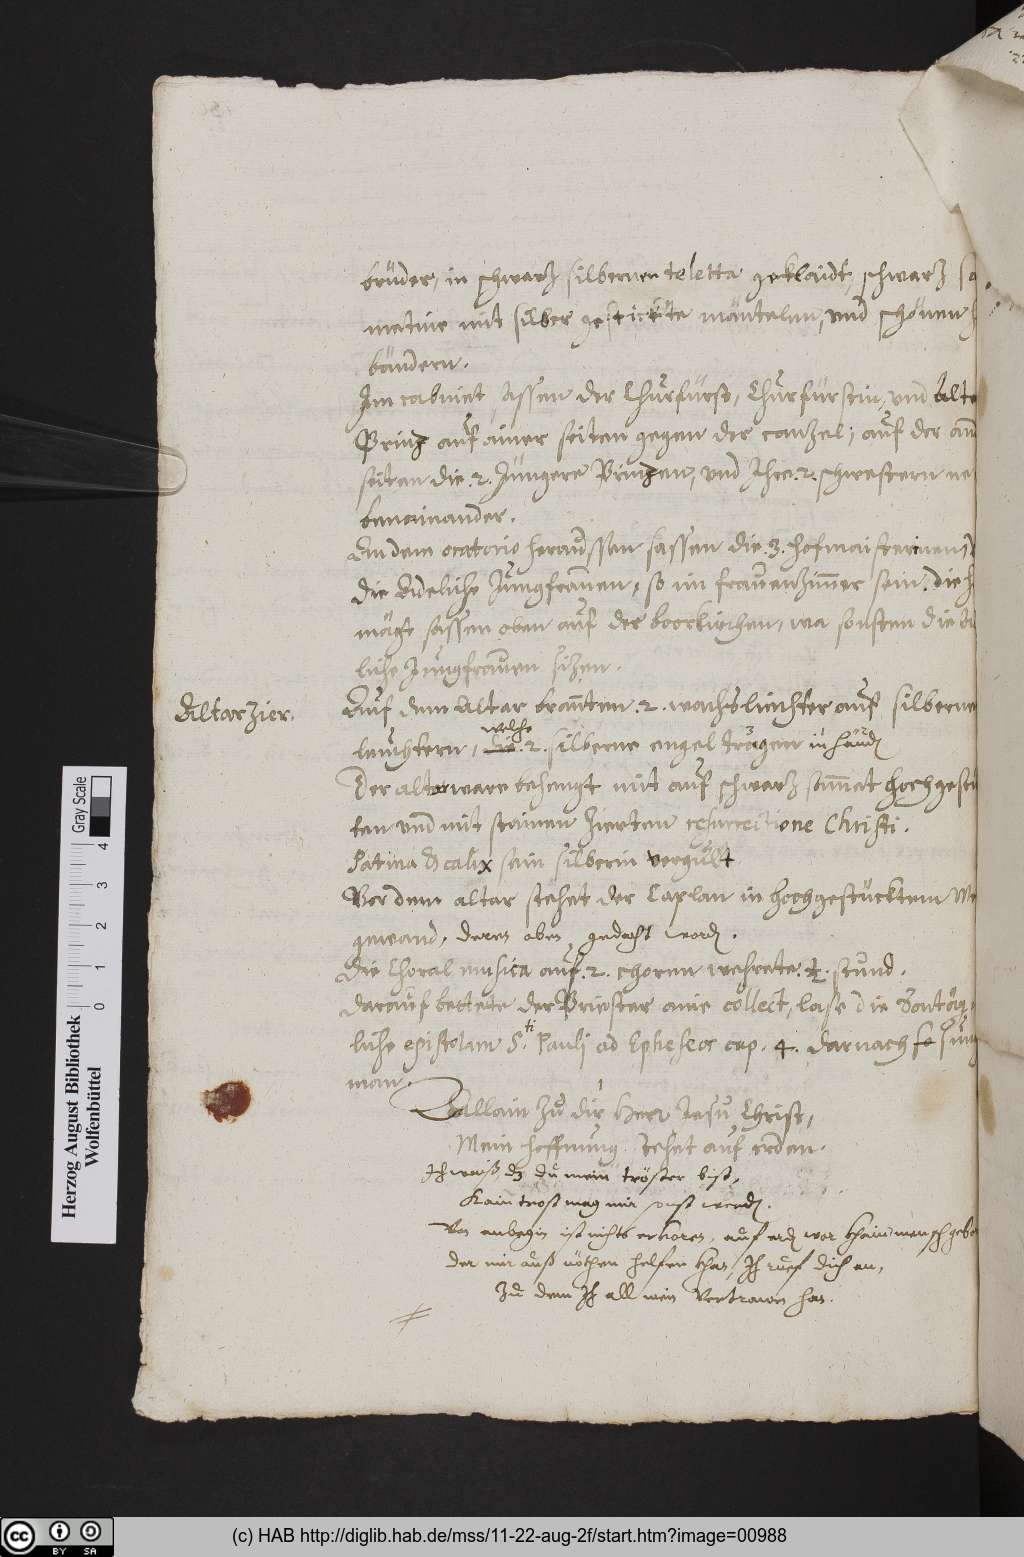 brüder, in schwarz silbernen teletta geklaidt, schwarz sa
metine mit silber gestickte mäntelen, und schönen
bändern.
Im cabinet sassen der Churfürst, Churfürstin, und Alte
Prinz auf ainer seiten gegen der canzel; auf der and
seiten die .2. Jüngere Prinzen, und Ihre .2. schwestern ne
beneinander.
An dem oratorio heraussen sassen die .3. hofmaisterinen,
die Adeliche Jungfrauen, so im frauenzimmer sein. die
mägt sassen oben auf der boorkirchen, wa sonsten die A
liche Jungfrauen sizen.
Altar zier.
Auf dem Altar branten .2. wachsliechter auf silberne
leuchtern, welche .2. silberne engel tragen in händen
Der altar ware behengt mit auf schwarz sammat hochgestü
ten und mit stainen zierten resurrectione Christi.
Patina & calix sein silberin vergült
Vor dem altar stehet der Caplan in hochgestücktem Me
gewand, deren oben gedacht worden.
Die Choral musica auf .2. choren wehrete stund.
darauf bettete der Priester aine collect, lase die Sontäg
liche epistolam S.ti Pauli ad Epheseos cap. 4. darnach sung
man.
Allain zu dir Herr Jesu Christ,
Mein hoffnung stehet auf erden.
Ich waiß, dz du mein tröster bist,
Kain trost mag mir sonst werden.
Von anbegin ist nichts erkoren, auf erden war khain mensch gebo
der mir auß nöthen helfen khan, Ich ruef dich an,
zu dem Ich all mein Vertrawen han.
Herzog August Bibliothek
Wolfenbüttel
Gray Scale
0 1 2 3 4
cc BY SA
(c) HAB http://diglib.hab.de/mss/11-22-aug-2f/start.htm?image=00988